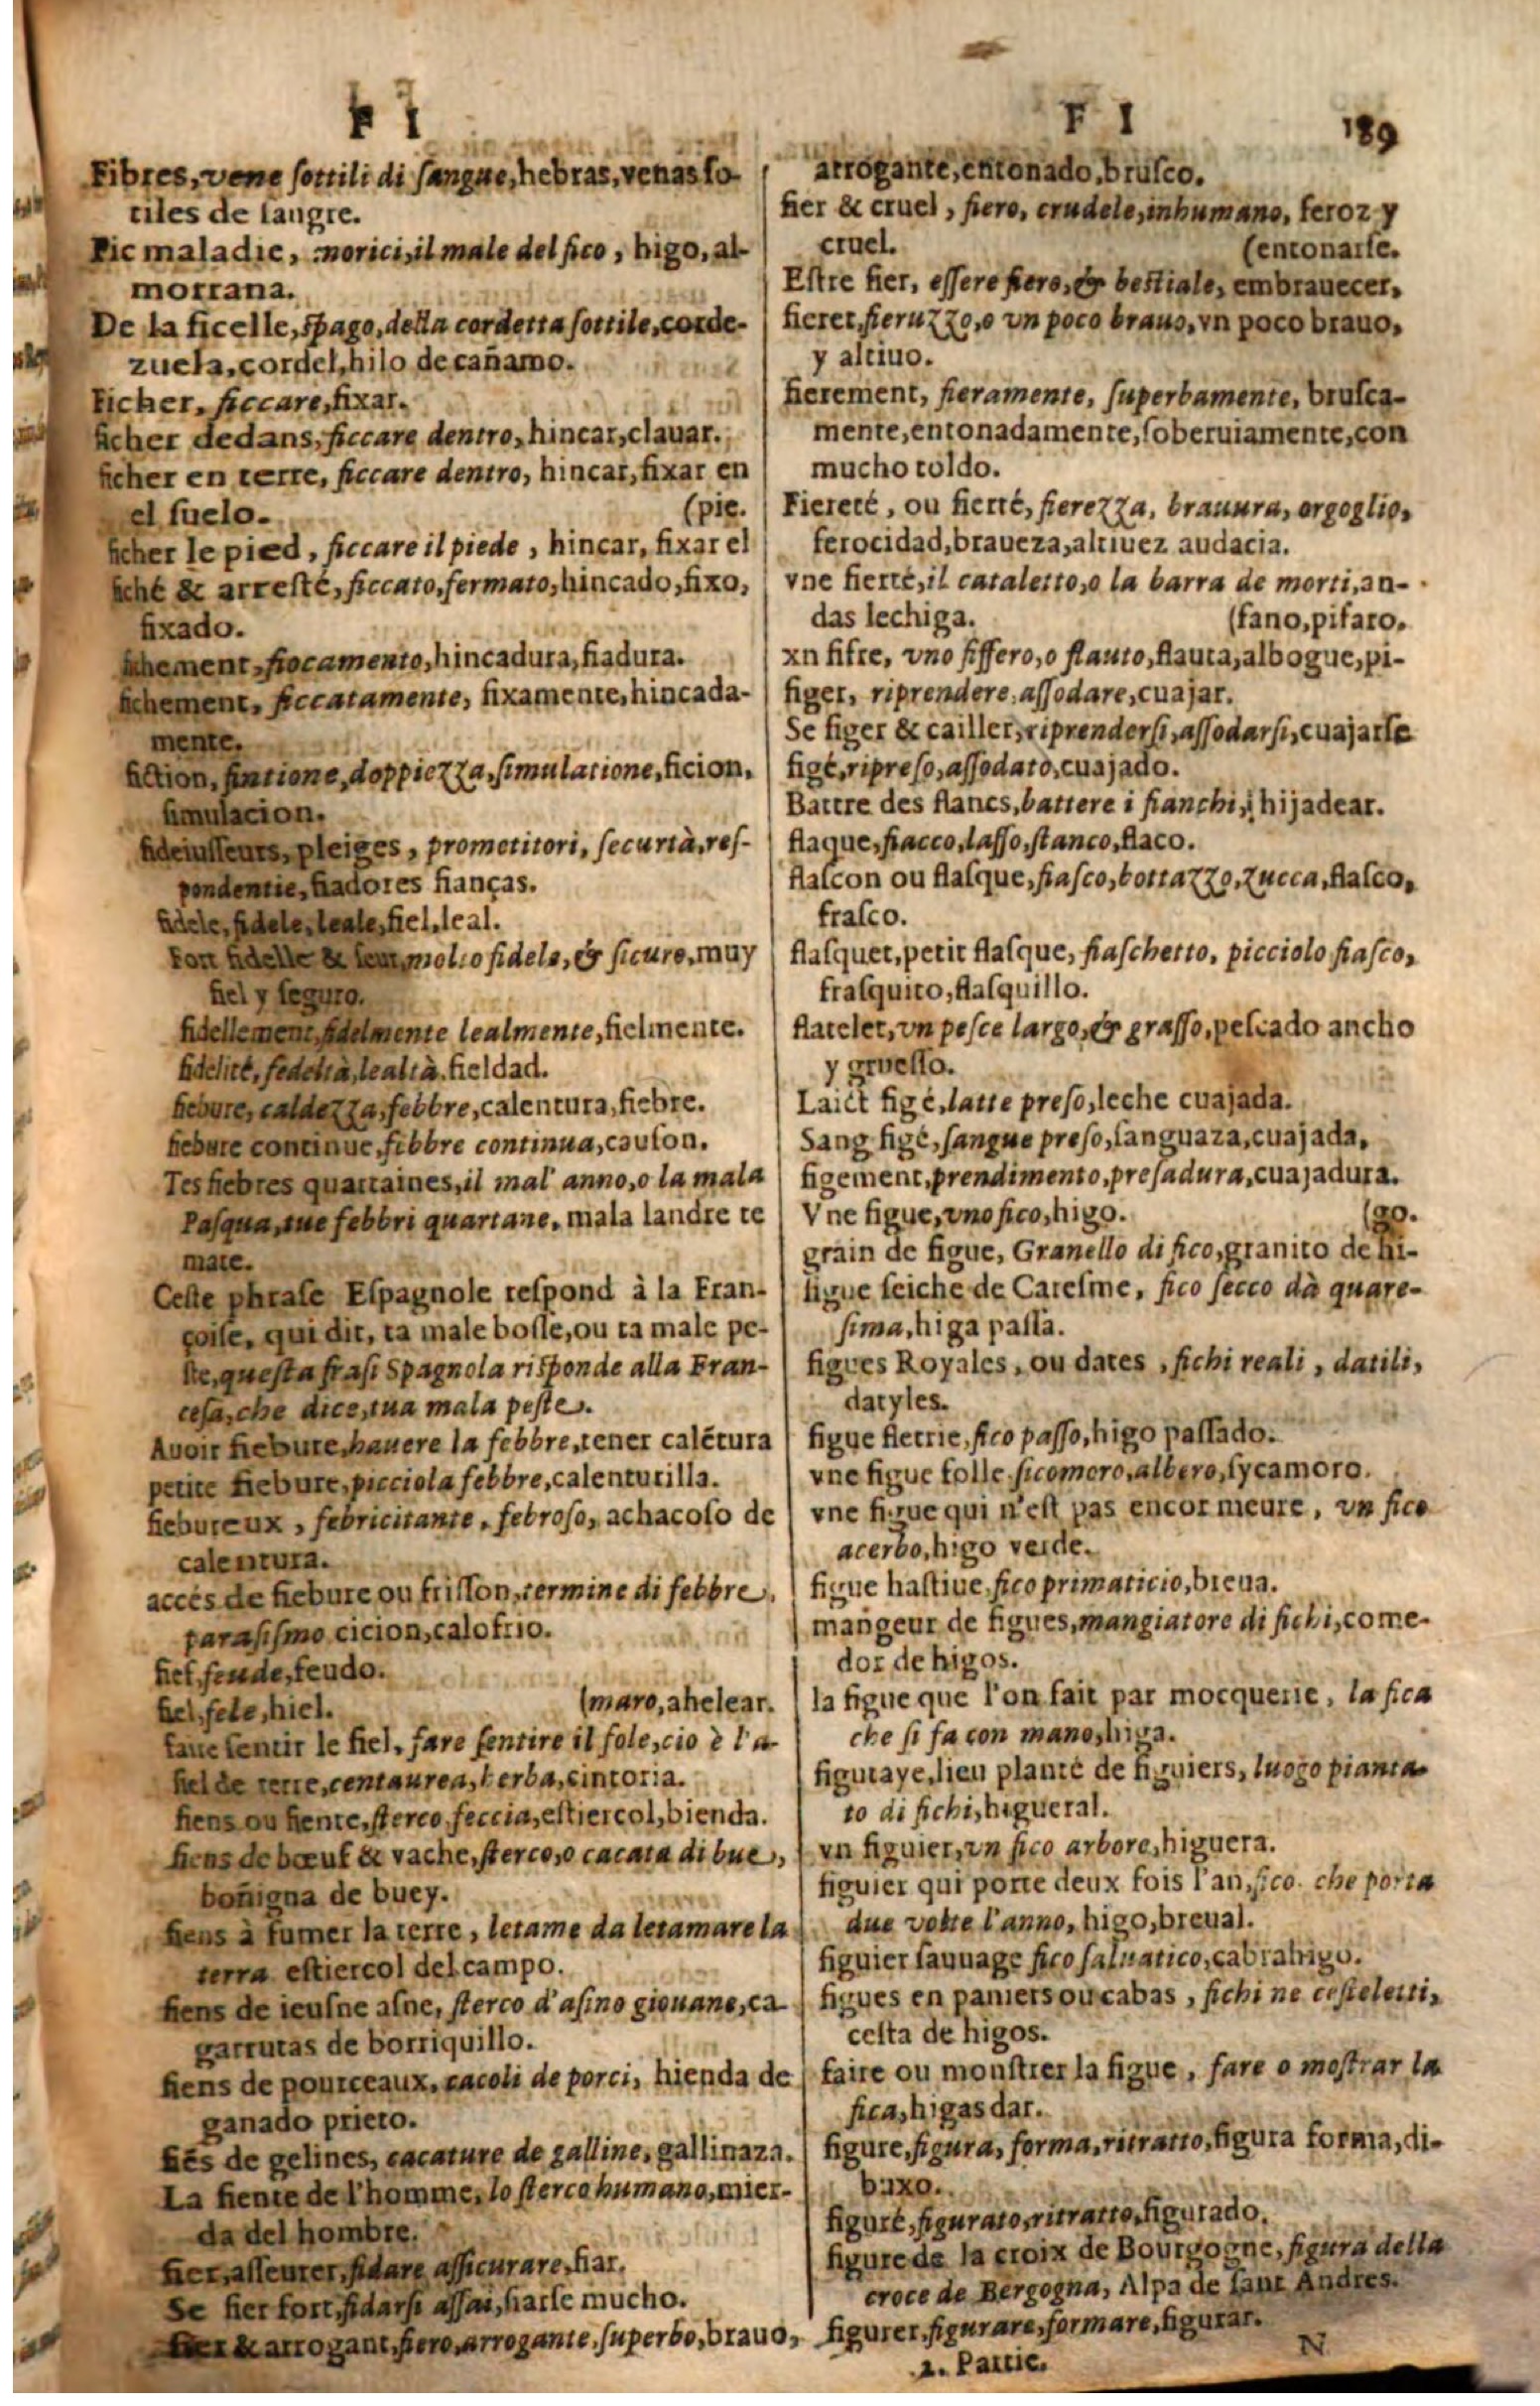 F I
Fibres, vene ſottili di ſangue, hebras, venas ſo-
tiles de ſangre.
Fic maladie, morici, il male del fico, higo, al-
morrana.
De la ficelle, ſpago, della cordetta ſottile, corde-
zuela, cordel, hilo de cañamo.
Ficher, ficcare, fixar.
ficher dedans, ficcare dentro, hincar, clauar.
ficher en terre, ficcare dentro, hincar, fixar en
el ſuelo. (pie.
ficher le pied, ficcare il piede, hincar, fixar el
fiché & arreſté, ficcato, fermato, hincado, fixo,
fixado.
fichement, fiocamento, hincadura, fiadura.
fichement, ficcatamente, fixamente, hincada-
mente.
fiction, fintione, doppiezza, ſimulatione, ficion,
ſimulacion.
fideiuſſeurs, pleiges, prometitori, ſecurtà, reſ-
pondentie, fiadores fianças.
fidele, fidele, leale, fiel, leal.
Fort fidelle & ſeur, molto fidele, & ſicuro, muy
fiel y ſeguro.
fidellement, fidelmente lealmente, fielmente.
fidelité, fedeltà, lealtà. fieldad.
fiebure, caldezza, febbre, calentura, fiebre.
fiebure continue, febbre continua, cauſon.
Tes fiebres quartaines, il mal' anno, o la mala
Paſqua, tue febbri quartane. mala landre te
mate.
Ceſte phraſe Eſpagnole reſpond à la Fran-
çoiſe, qui dit, ta male boſſe, ou ta male pe-
ſte, queſta fraſi Spagnola riſponde alla Fran-
ceſa, che dice, tua mala peſte.
Auoir fiebure, hauere la febbre, tener calẽtura
petite fiebure, picciola febbre, calenturilla.
fiebureux, febricitante, febroſo, achacoſo de
calentura.
accés de fiebure ou friſſon, termine di febbre,
paraſiſmo cicion, calofrio.
fief, feude, feudo.
fiel, fele, hiel. (maro, ahelear.
faire ſentir le fiel, fare ſentire il fole, cio è l'a-
fiel de terre, centaurea, herba, cintoria.
fiens ou fiente, ſterco, feccia, eſtiercol, bienda.
fiens de bœuf & vache, ſterco, o cacata di bue,
boñigna de buey.
fiens à fumer la terre, letame da letamare la
terra eſtiercol del campo.
fiens de ieuſne aſne, ſterco d'aſino giouane, ca-
garrutas de borriquillo.
fiens de pourceaux, cacoli de porci, hienda de
ganado prieto.
fiẽs de gelines, cacature de galline, gallinaza.
La fiente de l'homme, lo ſterco humano, mier-
da del hombre.
fier, aſſeurer, fidare aſſicurare, fiar.
Se fier fort, fidarſi aſſai, fiarſe mucho.
fier & arrogant, fiero, arrogante, ſuperbo, brauo,
F I 189
arrogante, entonado, bruſco.
fier & cruel, fiero, crudele, inhumano, feroz y
cruel. (entonarſe.
Eſtre fier, eſſere fiero, & beſtiale, embrauecer,
fieret, fieruzzo, o vn poco brauo, vn poco brauo,
y altiuo.
fierement, fieramente, ſuperbamente, bruſca-
mente, entonadamente, ſoberuiamente, con
mucho toldo.
Fiereté, ou fierté, fierezza, brauura, orgoglio,
ferocidad, braueza, altiuez audacia.
vne fierté, il cataletto, o la barra de morti, an-
das lechiga. (fano, pifaro.
xn fifre, vno fiffero, o flauto, flauta, albogue, pi-
figer, riprendere, aſſodare, cuajar.
Se figer & cailler, riprenderſi, aſſodarſi, cuajarſe
figé, ripreſo, aſſodato, cuajado.
Battre des flancs, battere i fianchi, hijadear.
flaque, fiacco, laſſo, ſtanco, flaco.
flaſcon ou flaſque, fiaſco, bottazzo, zucca, flaſco,
fraſco.
flaſquet, petit flaſque, fiaſchetto, picciolo fiaſco,
fraſquito, flaſquillo.
flatelet, vn peſce largo, & graſſo, peſcado ancho
y grueſſo.
Laict figé, latte preſo, leche cuajada.
Sang figé, ſangue preſo, ſanguaza, cuajada,
figement, prendimento, preſadura, cuajadura.
Vne figue, vno fico, higo. (go.
grain de figue, Granello di fico, granito de hi-
figue ſeiche de Careſme, fico ſecco dà quare-
ſima, higa paſſa.
figues Royales, ou dates, fichi reali, datili,
datyles.
figue fletrie, fico paſſo, higo paſſado.
vne figue folle, ſicomoro, albero, ſycamoro.
vne figue qui n'eſt pas encor meure, vn fico
acerbo, higo verde.
figue haſtiue, fico primaticio, breua.
mangeur de figues, mangiatore di fichi, come-
dor de higos.
la figue que l'on fait par mocquerie, la fica
che ſi fa con mano, higa.
figuraye, lieu planté de figuiers, luogo pianta-
to di fichi, higueral.
vn figuier, vn fico arbore, higuera.
figuier qui porte deux fois l'an, fico che porta
due volte l'anno, higo, breual.
figuier ſauuage fico ſaluatico, cabrahigo.
figues en paniers ou cabas, fichi ne ceſteletti,
ceſta de higos.
faire ou monſtrer la figue, fare o moſtrar la
fica, higas dar.
figure, figura, forma, ritratto, figura forma, di-
buxo.
figuré, figurato, ritratto, figurado.
figure de la croix de Bourgogne, figura della
croce de Bergogna, Alpa de ſant Andres.
figurer, figurare, formare, figurar.
2. Partie. N